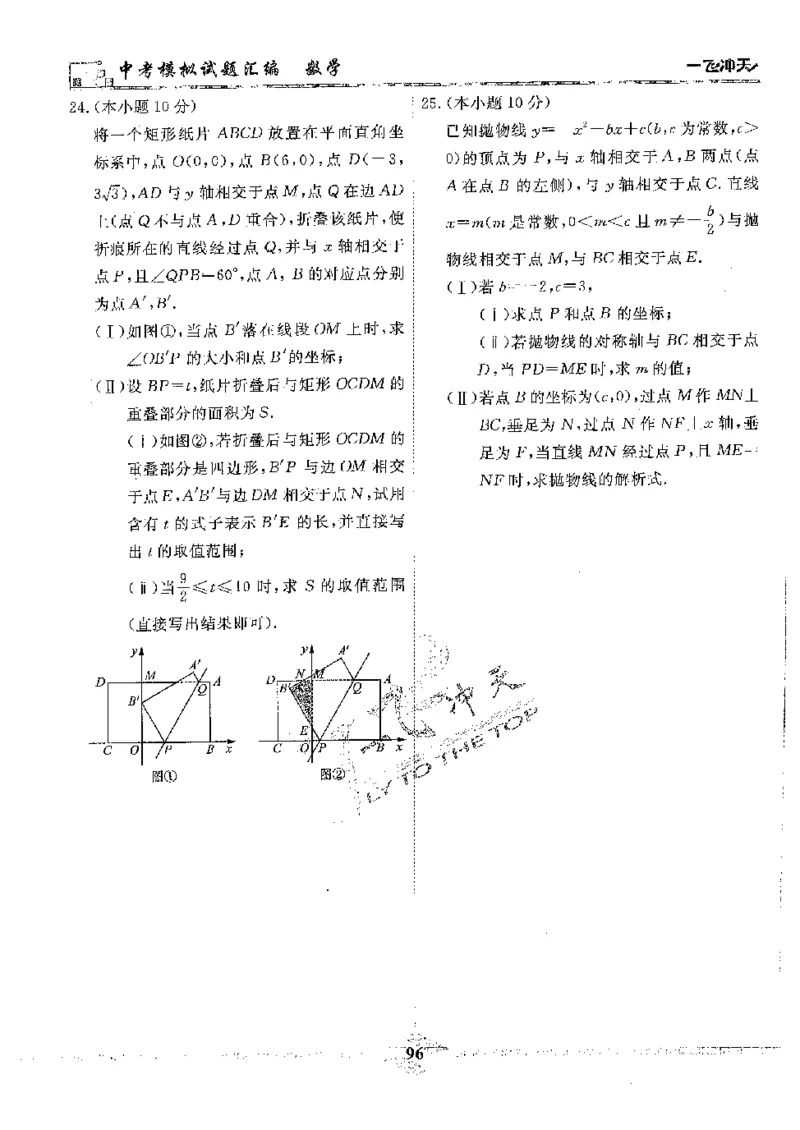 中考模拟试题汇编 数学
一飞冲天
24.(本小题10分)
将一个矩形纸片ABCD放置在平面直角坐
标系中,点O(0,0),点B(6,0),点D(-3,
3√3),AD与y轴相交于点M,点Q在边AD
上(点Q不与点A,D重合),折叠该纸片,使
折痕所在的直线经过点Q,并与x轴相交于
点P,且∠QPB=60°,点A,B的对应点分别
为点A′,B′.
(Ⅰ)如图①,当点B′落在线段OM上时,求
∠OB′P的大小和点B′的坐标;
(Ⅱ)设BP=t,纸片折叠后与矩形OCDM的
重叠部分的面积为S.
(ⅰ)如图②,若折叠后与矩形OCDM的
重叠部分是四边形,B′P与边OM相交
于点E,A′B′与边DM相交于点N,试用
含有t的式子表示B′E的长,并直接写
出t的取值范围;
(ⅱ)当9/2≤t≤10时,求S的取值范围
(直接写出结果即可).
y A′
D M Q A
B′
C O P B x
图①
y A′
D N M A
B′ Q
E
C O P B x
图②
25.(本小题10分)
已知抛物线y= x²-bx+c(b,c为常数,c>
0)的顶点为P,与x轴相交于A,B两点(点
A在点B的左侧),与y轴相交于点C.直线
x=m(m是常数,0<m<c且m≠-b/2)与抛
物线相交于点M,与BC相交于点E.
(Ⅰ)若b=-2,c=3,
(ⅰ)求点P和点B的坐标;
(ⅱ)若抛物线的对称轴与BC相交于点
D,当PD=ME时,求m的值;
(Ⅱ)若点B的坐标为(c,0),过点M作MN⊥
BC,垂足为N,过点N作NF⊥x轴,垂
足为F,当直线MN经过点P,且ME=
NF时,求抛物线的解析式.
飞冲天
LY TO THE TOP
96